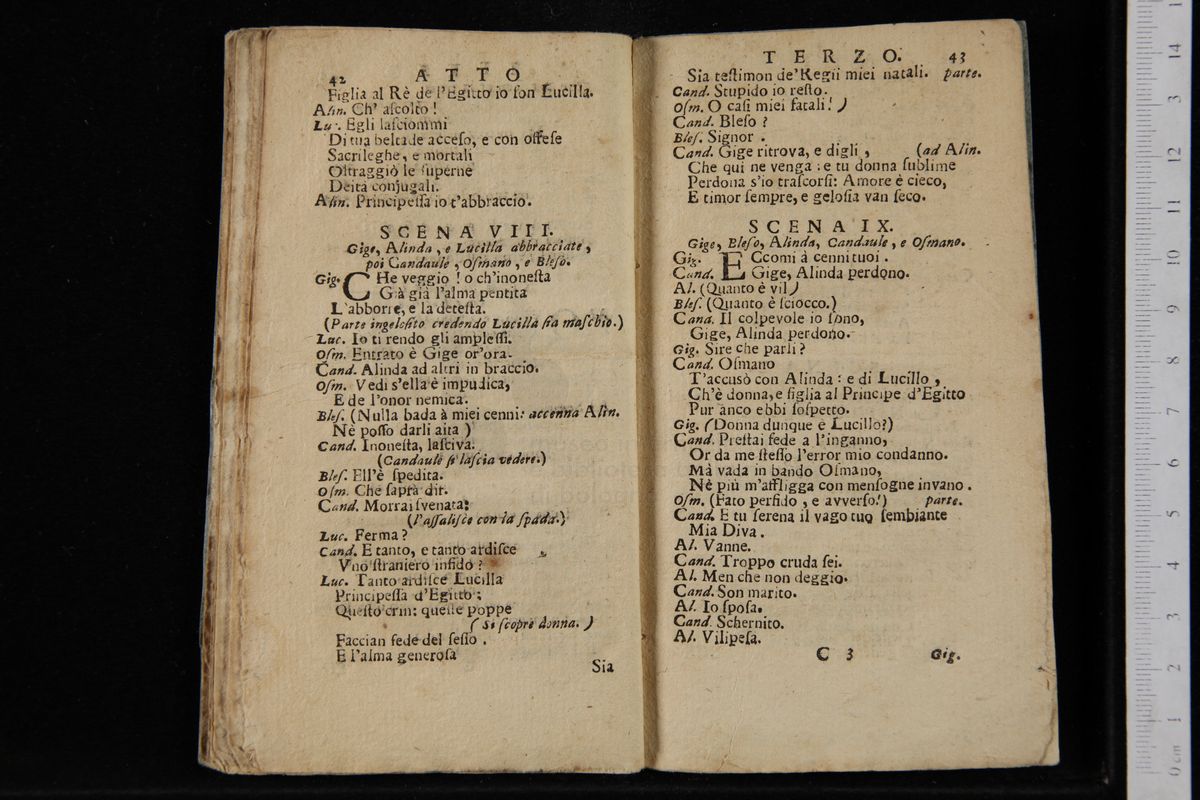 42 ATTO
Figlia al Rè de l'Egitto io ſon Lucilla.
Alin. Ch' aſcolto !
Luc. Egli laſciommi
Di tua beltade acceſo, e con offeſe
Sacrileghe, e mortali
Oltraggiò le ſuperne
Deità conjugali.
Alin. Principeſſa io t'abbraccio.
SCENA VIII.
Gige, Alinda, e Lucilla abbracciate,
poi Candaule, Oſmano, e Bleſo.
Gig. CHe veggio ! o ch'inoneſta
Già già l'alma pentita
L'abborre, e la deteſta.
(Parte ingeloſito credendo Lucilla ſia maſchio.)
Luc. Io ti rendo gli ampleſſi.
Oſm. Entrato è Gige or'ora.
Cand. Alinda ad altri in braccio.
Oſm. Vedi s'ella è impudica,
E de l'onor nemica.
Bleſ. (Nulla bada à miei cenni: accenna Alin.
Nè poſſo darli aita )
Cand. Inoneſta, laſciva.
(Candaule ſi laſcia vedere.)
Bleſ. Ell'è ſpedita.
Oſm. Che ſaprà dir.
Cand. Morrai ſvenata:
(l'aſſaliſce con la ſpada.)
Luc. Ferma ?
Cand. E tanto, e tanto ardiſce
Vno ſtraniero infido ?
Luc. Tanto ardiſce Lucilla
Principeſſa d'Egitto ;
Queſto crin: queſte poppe
( Si ſcopre donna. )
Faccian fede del ſeſſo .
E l'alma generoſa
Sia
TERZO. 43
Sia teſtimon de'Regii miei natali. parte.
Cand. Stupido io reſto.
Oſm. O caſi miei fatali! )
Cand. Bleſo ?
Bleſ. Signor .
Cand. Gige ritrova, e digli , (ad Alin.
Che qui ne venga : e tu donna ſublime
Perdona s'io traſcorſi: Amore è cieco,
E timor ſempre, e geloſia van ſeco.
SCENA IX.
Gige, Bleſo, Alinda, Candaule, e Oſmano.
Gig. ECcomi à cenni tuoi .
Cand. Gige, Alinda perdono.
Al. (Quanto è vil)
Bleſ. (Quanto è ſciocco.)
Cand. Il colpevole io ſono,
Gige, Alinda perdono.
Gig. Sire che parli ?
Cand. Oſmano
T'accusò con Alinda : e di Lucillo ,
Ch'è donna, e figlia al Principe d'Egitto
Pur anco ebbi ſoſpetto.
Gig. (Donna dunque è Lucillo?)
Cand. Preſtai fede a l'inganno,
Or da me ſteſſo l'error mio condanno.
Mà vada in bando Oſmano,
Nè più m'affligga con menſogne invano .
Oſm. (Fato perfido , e avverſo!) parte.
Cand. E tu ſerena il vago tuo ſembiante
Mia Diva.
Al. Vanne.
Cand. Troppo cruda ſei.
Al. Men che non deggio.
Cand. Son marito.
Al. Io ſpoſa.
Cand. Schernito.
Al. Vilipeſa.
C 3 Gig.